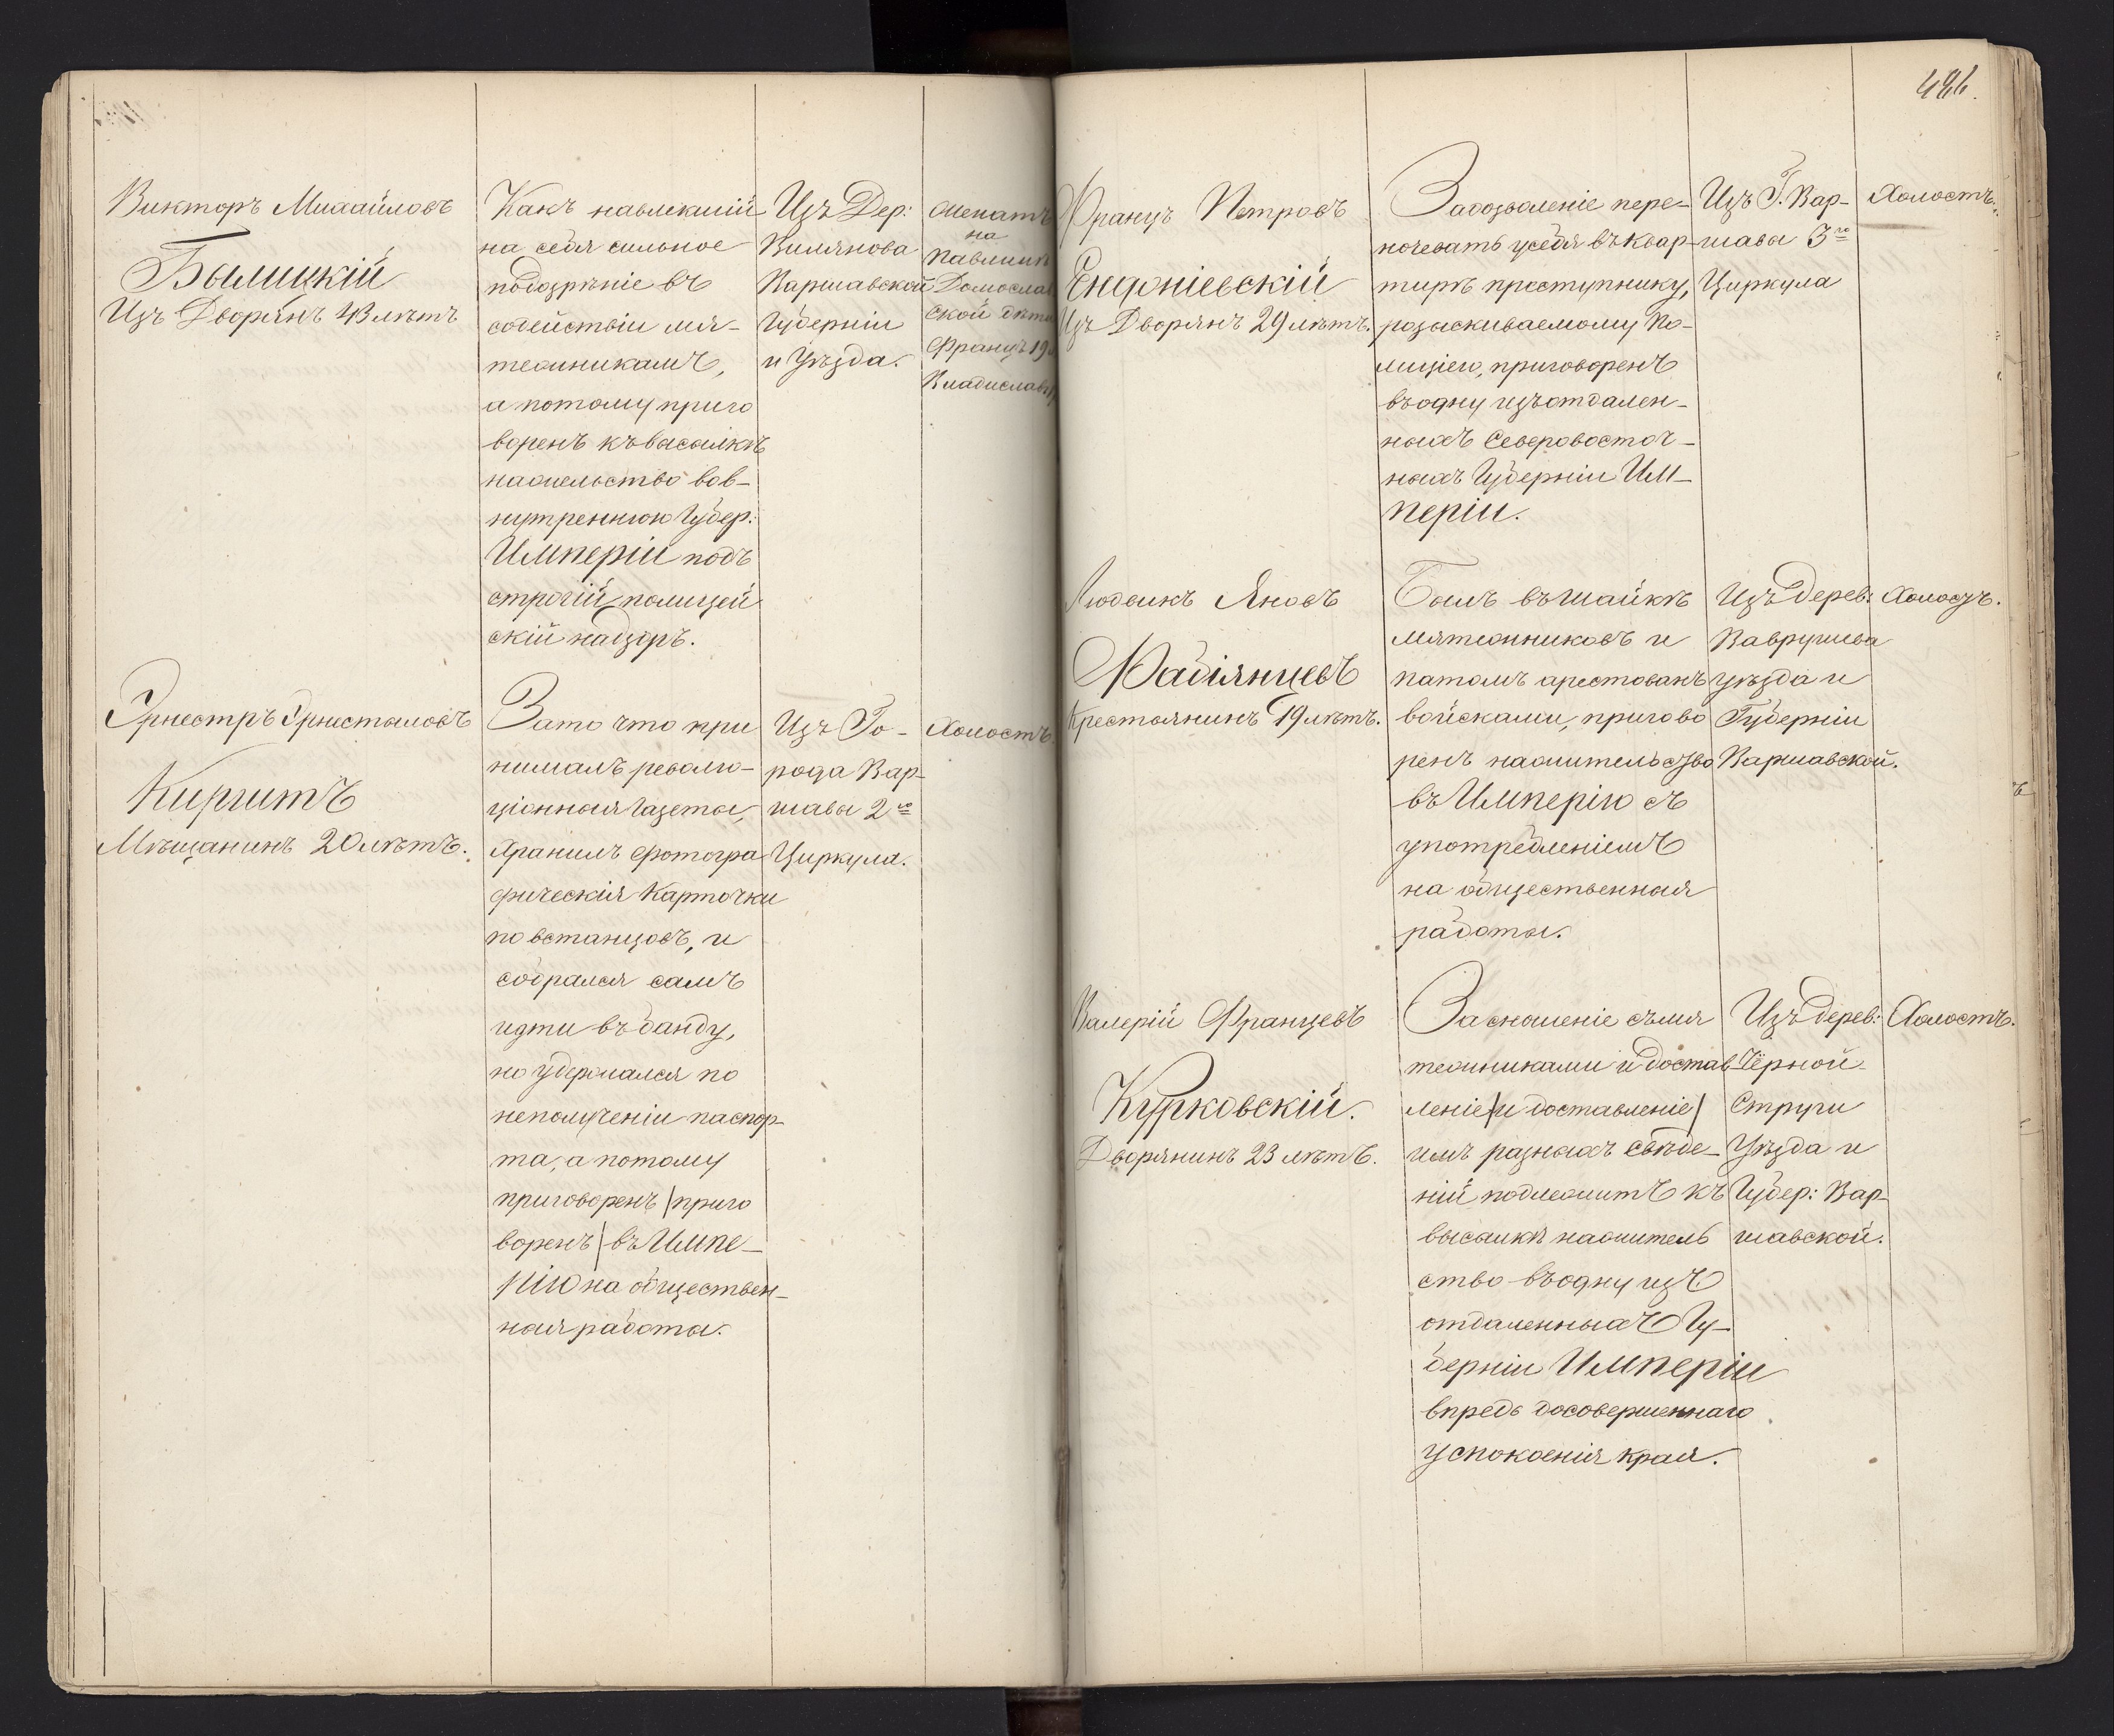 Викторъ Михайловъ
Былицкій
Изъ Дворянъ 43 лѣтъ
Какъ навлекшій
на себя сильное
подозрѣніе въ
содействіи мя-
тежникамъ,
а потому приго
воренъ къ высылкѣ
нажительство вов-
нутреннюю Губер:
Имперіи подъ
строгій полицей
скій надзоръ.
Изъ Дер:
Вилянова
Варшавской
Губерніи
и Уѣзда.
женатъ
на
Павлинѣ
Домослав
ской дѣти
Францъ 19
Владиславъ
Эрнестръ Эрнстомовъ
Киршитъ
Мѣщанинъ 20 лѣтъ.
Зато что при
нималъ револю-
ціонныя газеты,
хранилъ фотогра
фическія карточки
повстанцовъ, и
собрался самъ
идти въ банду,
но удержался по
неполученіи паспор-
та, а потому
приговоренъ /приго
воренъ/ въ Импе-
рію на обществен-
ныя работы.
Изъ Го-
рода Вар-
шавы 2го
Циркула.
Холостъ.
486.
Францъ Петровъ
Ендрніевскій
Изъ Дворянъ 29 лѣтъ.
Задозволеніе пере-
ночевать усебя въ квар-
тирѣ преступнику,
розыскиваемому По-
лиціею, приговоренъ
въ одну изъ отдален-
ныхъ Северовосточ-
ныхъ Губерніи Им-
періи.
Изъ Г. Вар-
шавы 3го
Циркула
Холостъ.
Людвикъ Яновъ
Фабіянцевъ
Крестьянинъ 19 лѣтъ.
Былъ въ шайкѣ
мятежниковъ и
патомъ арестованъ
войсками, пригово
ренъ нажительство
въ Имперію съ
употребленіемъ
на общественныя
работы.
Изъ дерев:
Вавришева
уѣзда и
Губерніи
Варшавской.
Холостъ.
Валерій Францевъ
Курковскій.
Дворянинъ 23 лѣтъ.
Засношеніе съ мя
тежниками и достав-
леніе /и доставленіе/
имъ разныхъ свѣде-
ній подлежитъ къ
высылкѣ нажитель
ство въ одну изъ
отдаленныхъ Гу-
берніи Имперіи
впредь досовершеннаго
успокоенія края.
Изъ дерев:
Чёрной
Струги
Уѣзда и
Губер: Вар-
шавской.
Холостъ.